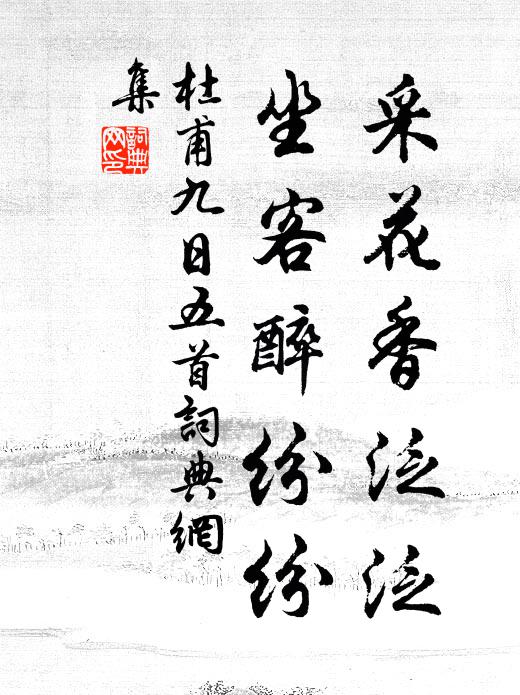 采花香泛泛
坐客醉纷纷
杜甫九日五首詞典網
集
詞典网印